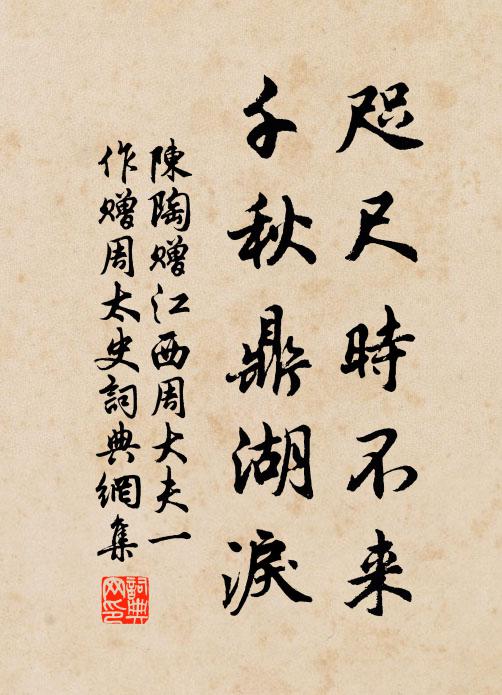 咫尺時不来
千秋鼎湖淚
陳陶贈江西周大夫一
作贈周太史詞典網集
詞典網印